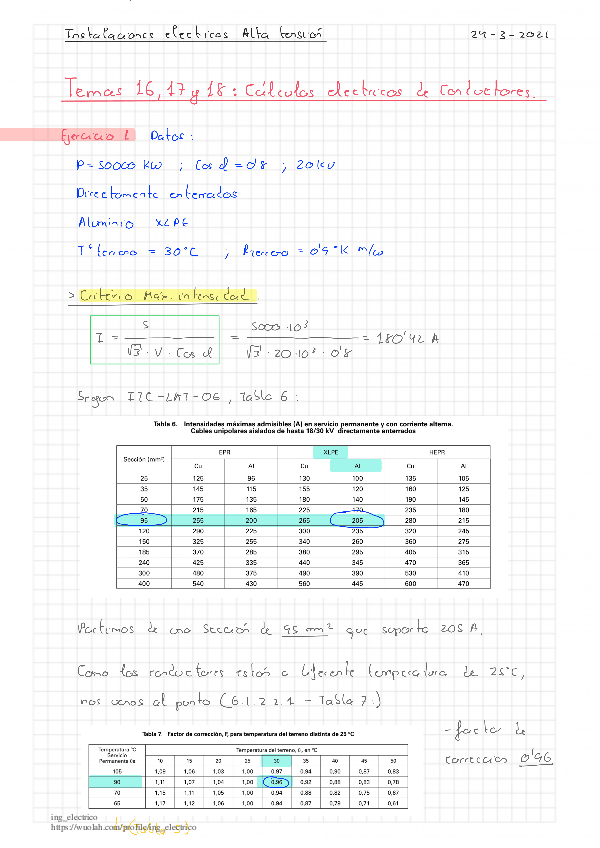 Instalaciones electricas Alta tensión 29-3-2021
Temas 16, 17 y 18: Cálculos electricos de Conductores.
Ejercicio 1 Datos:
P = 50000 KW ; Cos d = 0'8 ; 20 KV
Directamente enterrados
Aluminio XLPE
Tª terreno = 30°C , Rterreno = 0'9 °K m/w
> Criterio Máx. intensidad
I = S / √3 · V · Cos d = 5000·10³ / √3 · 20·10³ · 0'8 = 180'42 A
Segun ITC-LAT-06, Tabla 6:
Tabla 6. Intensidades máximas admisibles (A) en servicio permanente y con corriente alterna.
Cables unipolares aislados de hasta 18/30 kV directamente enterrados
Sección (mm²) EPR XLPE HEPR
Cu Al Cu Al Cu Al
25 125 96 130 100 135 105
35 145 115 155 120 160 125
50 175 135 180 140 190 145
70 215 165 225 170 235 180
95 255 200 265 205 280 215
120 290 225 300 235 320 245
150 325 255 340 260 360 275
185 370 285 380 295 405 315
240 425 335 440 345 470 365
300 480 375 490 390 530 410
400 540 430 560 445 600 470
Partimos de una sección de 95 mm² que soporta 205 A.
Como los conductores están a diferente temperatura de 25°C,
nos vamos al punto (6.1.2.2.1 - Tabla 7:)
Tabla 7. Factor de corrección, F, para temperatura del terreno distinta de 25 °C
Temperatura °C Servicio Permanente θs Temperatura del terreno, θt, en °C
10 15 20 25 30 35 40 45 50
105 1,09 1,06 1,03 1,00 0,97 0,94 0,90 0,87 0,83
90 1,11 1,07 1,04 1,00 0,96 0,92 0,88 0,83 0,78
70 1,15 1,11 1,05 1,00 0,94 0,88 0,82 0,75 0,67
65 1,17 1,12 1,06 1,00 0,94 0,87 0,79 0,71 0,61
- factor de
corrección 0'96
ing_electrico
https://wuolah.com/profile/ing_electrico